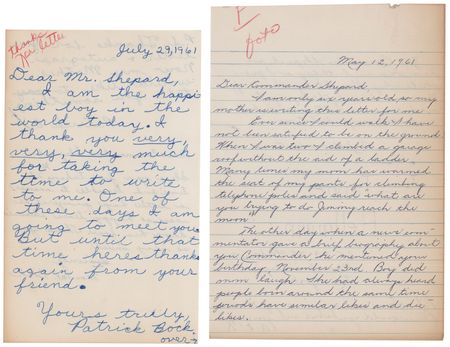 thanks
for letter
July 29, 1961
Dear Mr. Shepard,
I am the happi
est boy in the
world today. I
thank you very,
very, very much
for taking the
time to write
to me. One of
these days I am
going to meet you.
But until that
time heres thanks
again from your
friend.
Yours truly,
Patrick Bock
over →
P
foto
May 12, 1961
Dear Commander Shepard,
I am only six years old, so my
mother is writing this letter for me.
Ever since I could walk I have
not been satisfied to be on the ground.
When I was two I climbed a garage
roof without the aid of a ladder.
Many times my mom has warmed
the seat of my pants for climbing
telephone poles and said "what are
you trying to do Jimmy, reach the
moon"
The other day when a news com-
mentator gave a brief biography about
you Commander, he mentioned your
birthday, November 23rd. Boy did
mom laugh. She had always heard
people born around the same time
periods have similar likes and dis-
likes.